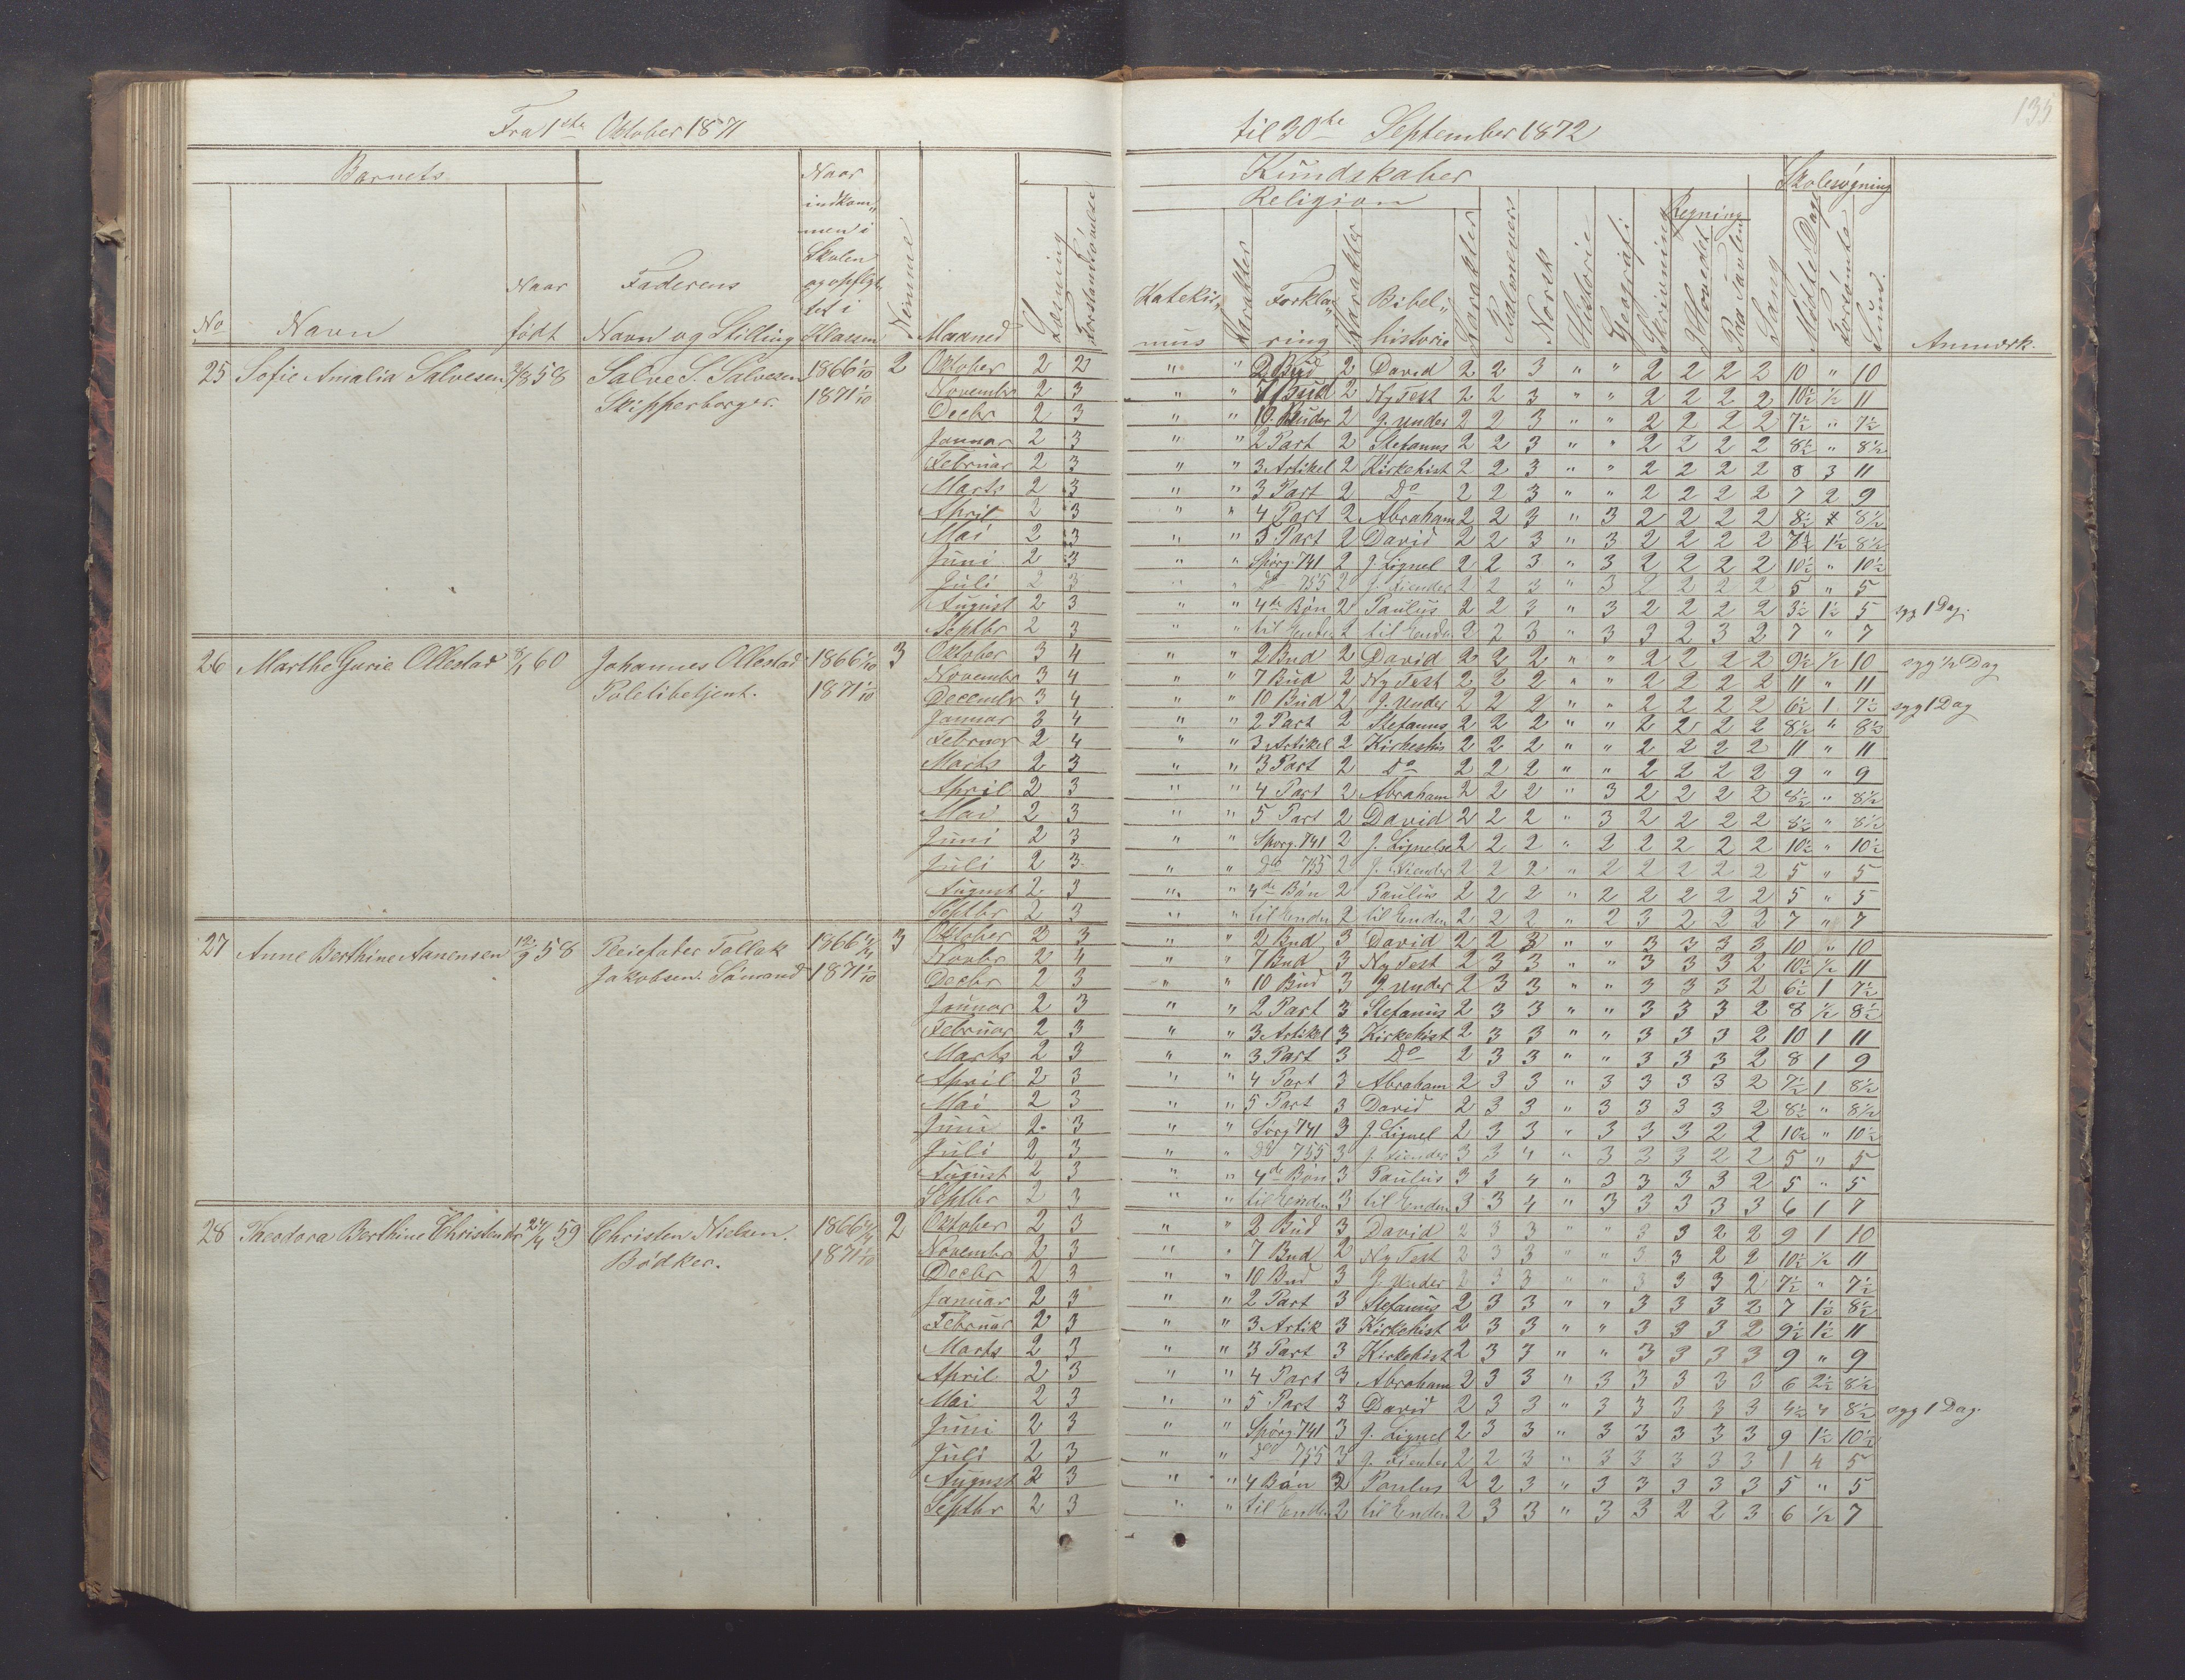 135
Fra 1ste Oktober 1871 til 30te September 1872
Barnets Kundskaber Skolesøgning
Religion Regning
No Navn Naar født Faderens Navn og Stilling Naar indkom„men i Skolen og opflyttet i Klassen Nemme Maaned Læsning Forstandsøvelse Katekis„mus Karakter Forkla„ring Karakter Bibel„historie Karakter Psalmevers Norsk Historie Geografi Skrivning I Hovedet Paa Tavlen Sang Mødte Dage Forsømte Sum. Anmærk.
25 Sofie Amalia Salvesen 58 Salve S. Salvesen 1866 1/10 2 Oktober 2 2 " " 2 Bud 2 David 2 2 3 " " 2 2 2 2 10 " 10
Skipperborger. 1871 1/10 Novembr 2 3 " " 7 Bud 2 Ny Test 2 2 3 " " 2 2 2 2 10½ ½ 11
Decbr 2 3 " " 10 2 J. Under 2 2 3 " " 2 2 2 2 7½ " 7½
Januar 2 3 " " 2 Part 2 Stefanus 2 2 3 " " 2 2 2 2 8½ " 8½
Februar 2 3 " " 3 Artikel 2 Kirkehist 2 2 3 " " 2 2 2 2 8 3 11
Marts 2 3 " " 3 Part 2 Do 2 2 3 " " 2 2 2 2 7 2 9
April 2 3 " " 4 Part 2 Abraham 2 2 3 " 3 2 2 2 2 8½ 8½
Mai 2 3 " " 5 Part 2 David 2 2 3 " 3 2 2 2 2 7½ 1½ 8½
Juni 2 3 " " Spørg. 741 2 J. Lignel 2 2 3 " 3 2 2 2 2 10½ " 10½
Juli 2 3 " " Do 755 2 J. Fiender 2 2 3 " 3 2 2 2 2 5 " 5
August 2 3 " " 4de Bøn 2 Paulus 2 2 3 " 3 2 2 2 2 3½ 1½ 5 syg 1 Dag.
Septbr 2 3 " " til Enden 2 til Enden 2 2 3 " 3 3 2 3 2 7 " 7
26 Marthe Gurie Ollestad 8/1 60 Johannes Ollestad 1866 1/10 3 Oktober 3 4 " " 2 Bud 2 David 2 2 2 " " 2 2 2 2 9½ ½ 10 syg ½ Dag
Politibetjent. 1871 1/10 Novembr 3 4 " " 7 Bud 2 Ny Test 2 2 2 " " 2 2 2 2 11 " 11
Decembr 3 4 " " 10 Bud 2 J. Under 2 2 2 " " 2 2 2 2 6½ 1 7½ syg 1 Dag
Januar 3 4 " " 2 Part 2 Stefanus 2 2 2 " " 2 2 2 2 8½ " 8½
Februar 2 4 " " 3 Artikel 2 Kirkehis 2 2 2 " " 2 2 2 2 11 " 11
Marts 2 3 " " 3 Part 2 Do 2 2 2 " " 2 2 2 2 9 " 9
April 2 3 " " 4 Part 2 Abraham 2 2 2 " 3 2 2 2 2 8½ " 8½
Mai 2 3 " " 5 Part 2 David 2 2 2 " 3 2 2 2 2 8½ " 8½
Juni 2 3 " " Spørg. 741 2 J. Lignelse 2 2 2 " 2 2 2 2 2 10½ " 10½
Juli 2 3 " " Do 755 2 J. Fiender 2 2 2 " 2 2 2 2 2 5 " 5
August 2 3 " " 4de Bøn 2 Paulus 2 2 2 " 2 2 2 2 2 5 " 5
Septbr 2 3 " " til Enden 2 til Enden 2 2 2 " 2 3 2 2 2 7 " 7
27 Anne Berthine Aanensen 12/9 58 Pleiefader Tallak 1866 3 Oktober 2 3 " " 2 Bud 3 David 2 2 3 " " 3 3 3 3 10 " 10
Jakobsen. Sømand 1871 1/10 Novbr 2 4 " " 7 Bud 3 Ny Test 2 3 3 " " 3 3 3 2 10½ ½ 11
Decbr 2 3 " " 10 Bud 3 J. Under 2 3 3 " " 3 3 3 2 6½ 1 7½
Januar 2 3 " " 2 Part 3 Stefanus 2 3 3 " " 3 3 3 2 8 ½ 8½
Februar 2 3 " " 3 Artikel 3 Kirkehist 2 3 3 " " 3 3 3 2 10 1 11
Marts 2 3 " " 3 Part 3 Do 2 3 3 " " 3 3 3 2 8 1 9
April 2 3 " " 4 Part 3 Abraham 2 3 3 " 3 3 3 3 2 7½ 1 8½
Mai 2 3 " " 5 Part 3 David 2 3 3 " 3 3 3 3 2 8½ " 8½
Juni 2 3 " " Sørg 741 3 J. Lignel 2 3 3 " 3 3 3 2 2 10½ " 10½
Juli 2 3 " " Do 755 3 J. Fiender 3 3 4 " 3 3 3 2 2 5 " 5
August 2 3 " " 4de Bøn 3 Paulus 3 3 4 " 3 3 3 3 2 5 " 5
Septbr 2 3 " " til Enden 3 til Enden 3 3 4 " 3 3 3 3 3 6 1 7
28 Theodora Berthine Christensdr 24/4 59 Christen Nielsen. 1866 2 Oktober 2 3 " " 2 Bud 3 David 2 3 3 " " 3 3 2 2 9 1 10
Bødker. 1871 1/10 Novembr 2 3 " " 7 Bud 2 Ny Test 2 3 3 " " 3 3 2 2 10½ ½ 11
Decbr 2 3 " " 10 Bud 3 J. Under 2 3 3 " " 3 3 3 2 7½ " 7½
Januar 2 3 " " 2 Part 3 Stefanus 2 3 3 " " 3 3 3 2 7 1½ 8½
Februar 2 3 " " 3 Artik 3 Kirkehist 2 3 3 " " 3 3 3 2 9½ 1½ 11
Marts 2 3 " " 3 Part 3 Kirkehist 2 3 3 " " 3 3 3 3 9 " 9
April 2 3 " " 4 Part 3 Abraham 2 3 3 " 3 3 3 3 3 6 2½ 8½
Mai 2 3 " " 5 Part 3 David 2 3 3 " 3 3 3 3 3 4½ 4 8½ syg 1 Dag.
Juni 2 3 " " Spørg 741 3 J. Lignel 2 3 3 " 3 3 3 3 3 9 1½ 10½
Juli 2 3 " " Do 755 3 J. Fiender 2 2 3 " 3 3 3 3 3 1 4 5
August 2 3 " " 4 Bøn 2 Paulus 2 2 3 " 3 3 3 3 3 5 " 5
Septbr 2 3 " " til Enden 2 til Enden 2 3 3 " 3 3 2 2 3 6 ½ 7